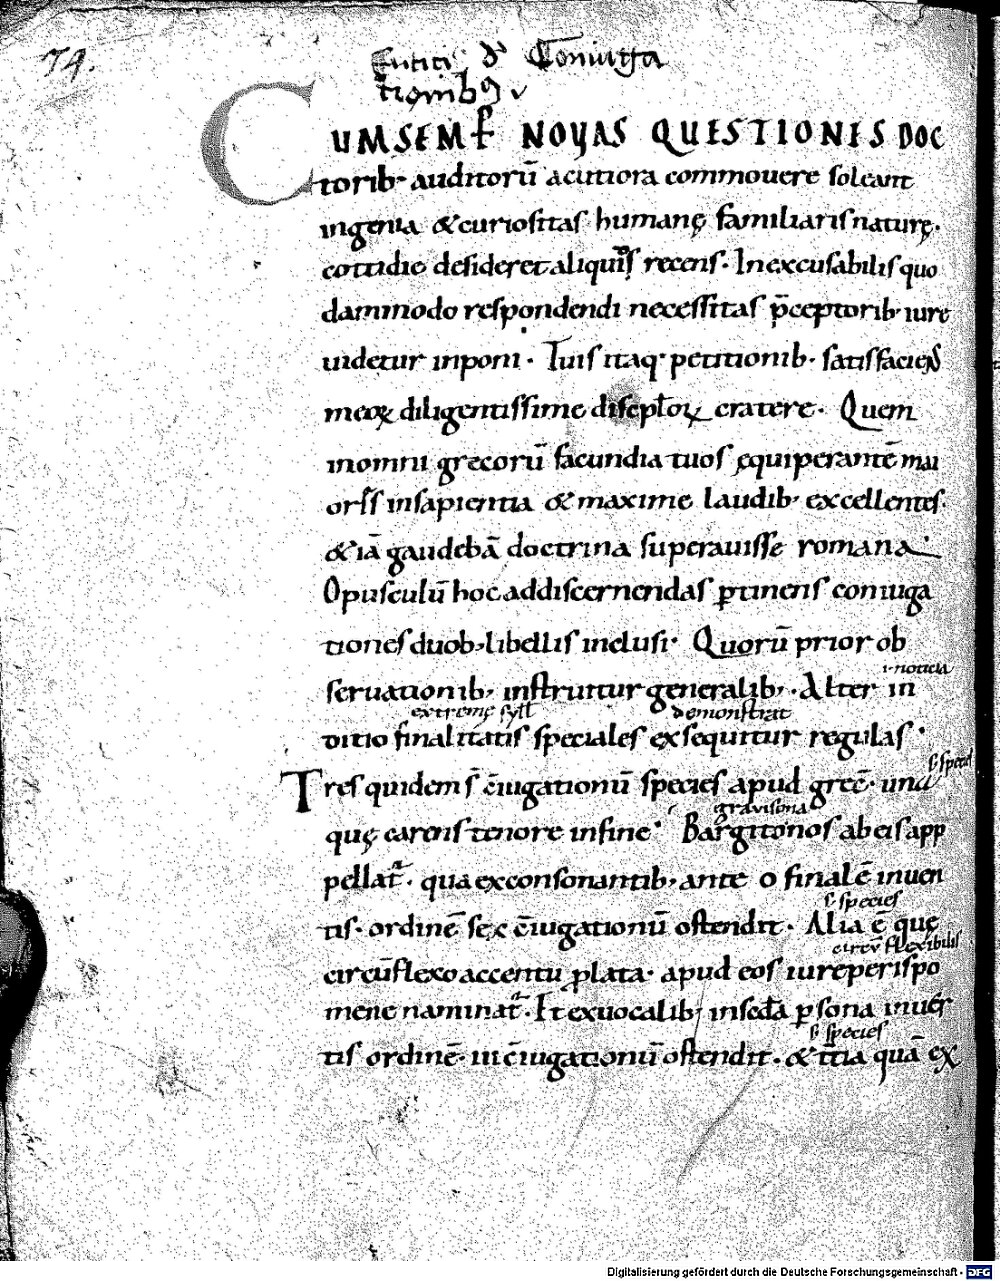 74.
Eutitis d' Coniuga
tionib9 v
CUMSEMP̲ NOVAS QUESTIONES DOC
torib· auditorū acutiora commouere soleant
ingenia &curiositas humanę familiaris naturę·
cottidie desideret aliquis recens· Inexcusabilis quo
dammodo respondendi necessitas p̄ceptorib· iure
uidetur inponi· Tuis itaq· petitionib· satisfaciens
meoꝝ diligentissime discipl̄oꝝ cratere· Quem
inomni grecorū facundia tuos ęquiperantē mai
orēs insapientia & maxime laudib· excellentes·
&iā gaudebā doctrina superauisse romana·
Opusculū hoc addiscernendas ꝑtinens coniuga
tiones duob· libellis inclusi· Quorū prior ob
i· noticia
seruationib· instruitur generalib·· Alter in
extremę syll demonstrat
ditio finalitatis speciales exsequitur regulas·
s· species
Tres quidem s̄ c̄iugationū species apud grec̄· una
grauisona
quę carens tenore infine· Bargitonos ab eis app
pellat᷑· qua exconsonantib· ante o finalē inuen
s· species
tis· ordinē sex c̄iugationū ostendit· Alia ē quę
circūflexibilis
circūflexo accentu ꝓlata· apud eos iure perispo
mene naminat᷑· It exuocalib· inscd̄a ꝑsona inuen
s· species
tis ordinē· iii c̄iugationū ostendit· & t̄tia quā ex
Digitalisierung gefördert durch die Deutsche Forschungsgemeinschaft - DFG